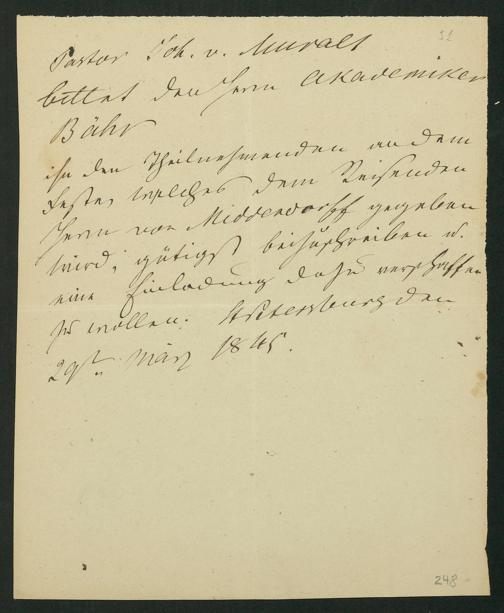 31
Pastor Joh. v. Muralt
bittet den Herrn Akademiker
Bähr
ihn den Theilnehmenden an dem
Feste, welches dem Reisenden
Herrn von Middendorff gegeben
wird, gütigst beizuschreiben u.
eine Einladung dazu verschaffen
zu wollen. St Petersburg den
29ten März 1845.
248